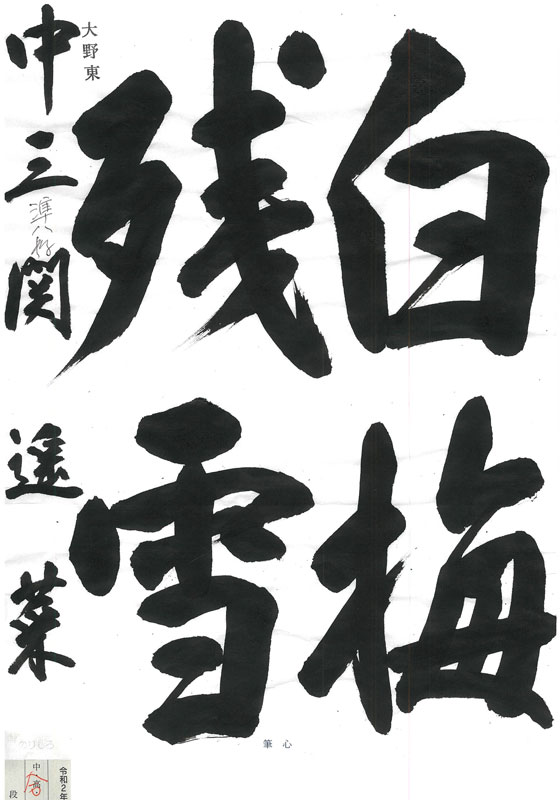 白梅
残雪
大野東
中三 準八段 関 遥菜
心筆
令和2年
中高
段